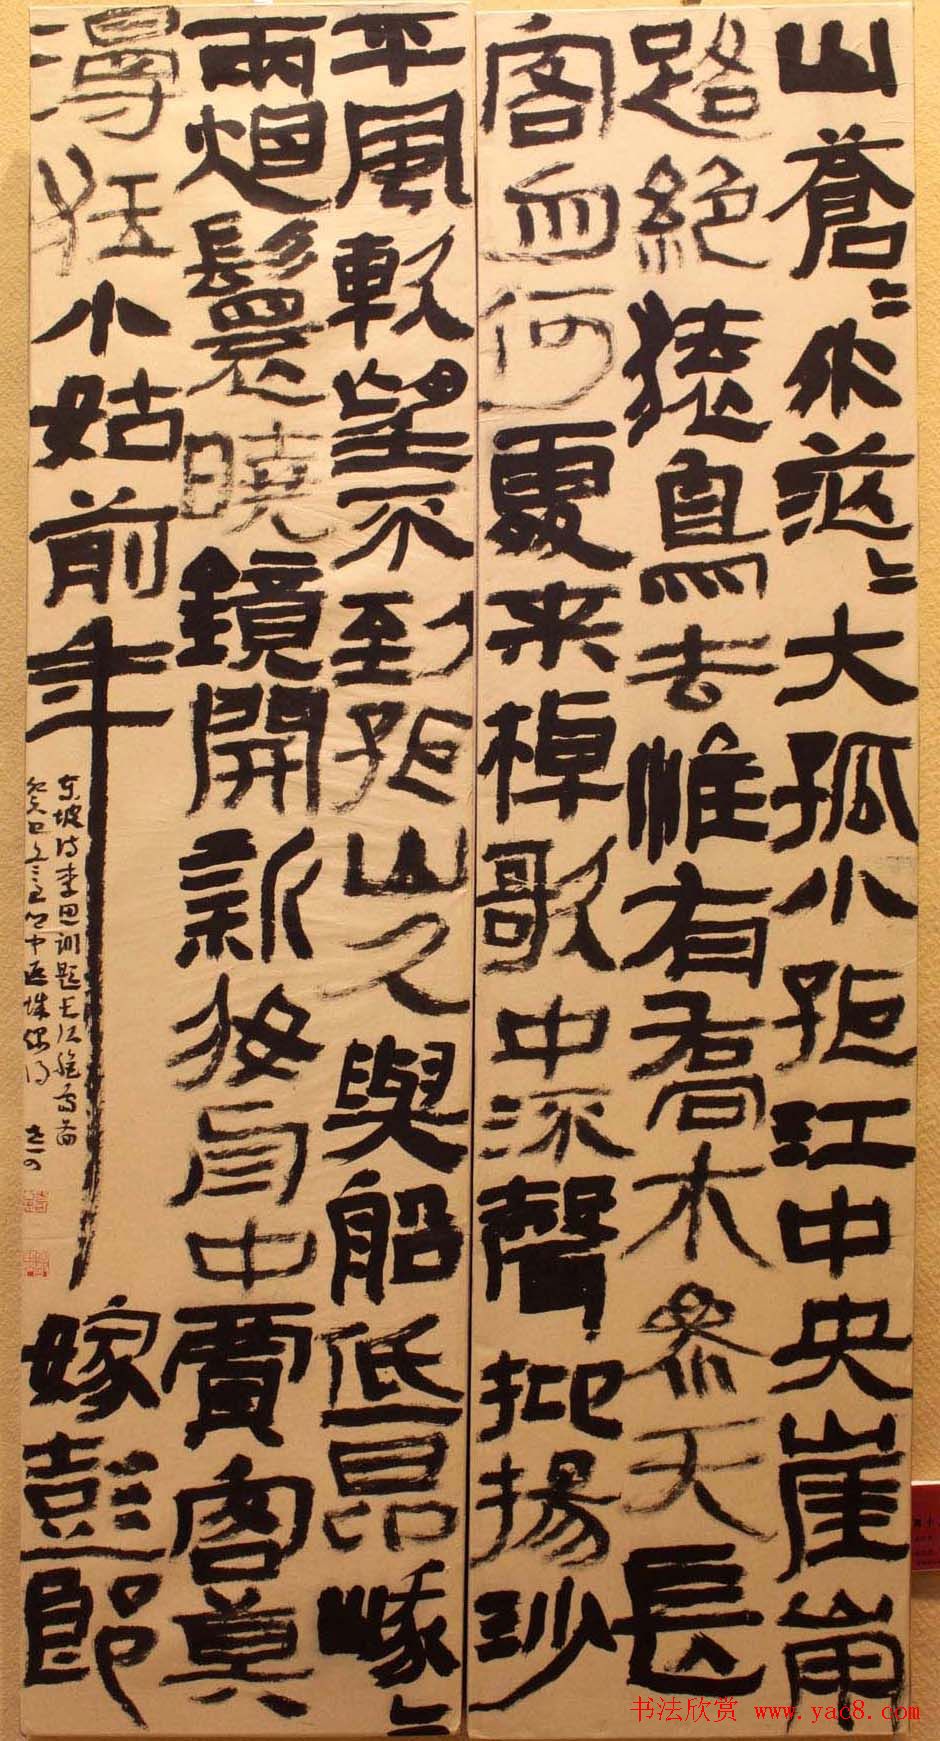 山蒼〻水茫〻大孤小孤江中央崖崩
路絕猿鳥去惟有喬木參天長
客舟何處来棹歌中流聲抑揚沙
平風軟望不到孤山久與船低昂峨〻
兩烟鬟曉鏡開新妝舟中賈客莫
漫狂小姑前年嫁彭郎
东坡诗李思训题长江绝岛图
癸巳
书法欣赏 www.yac8.com